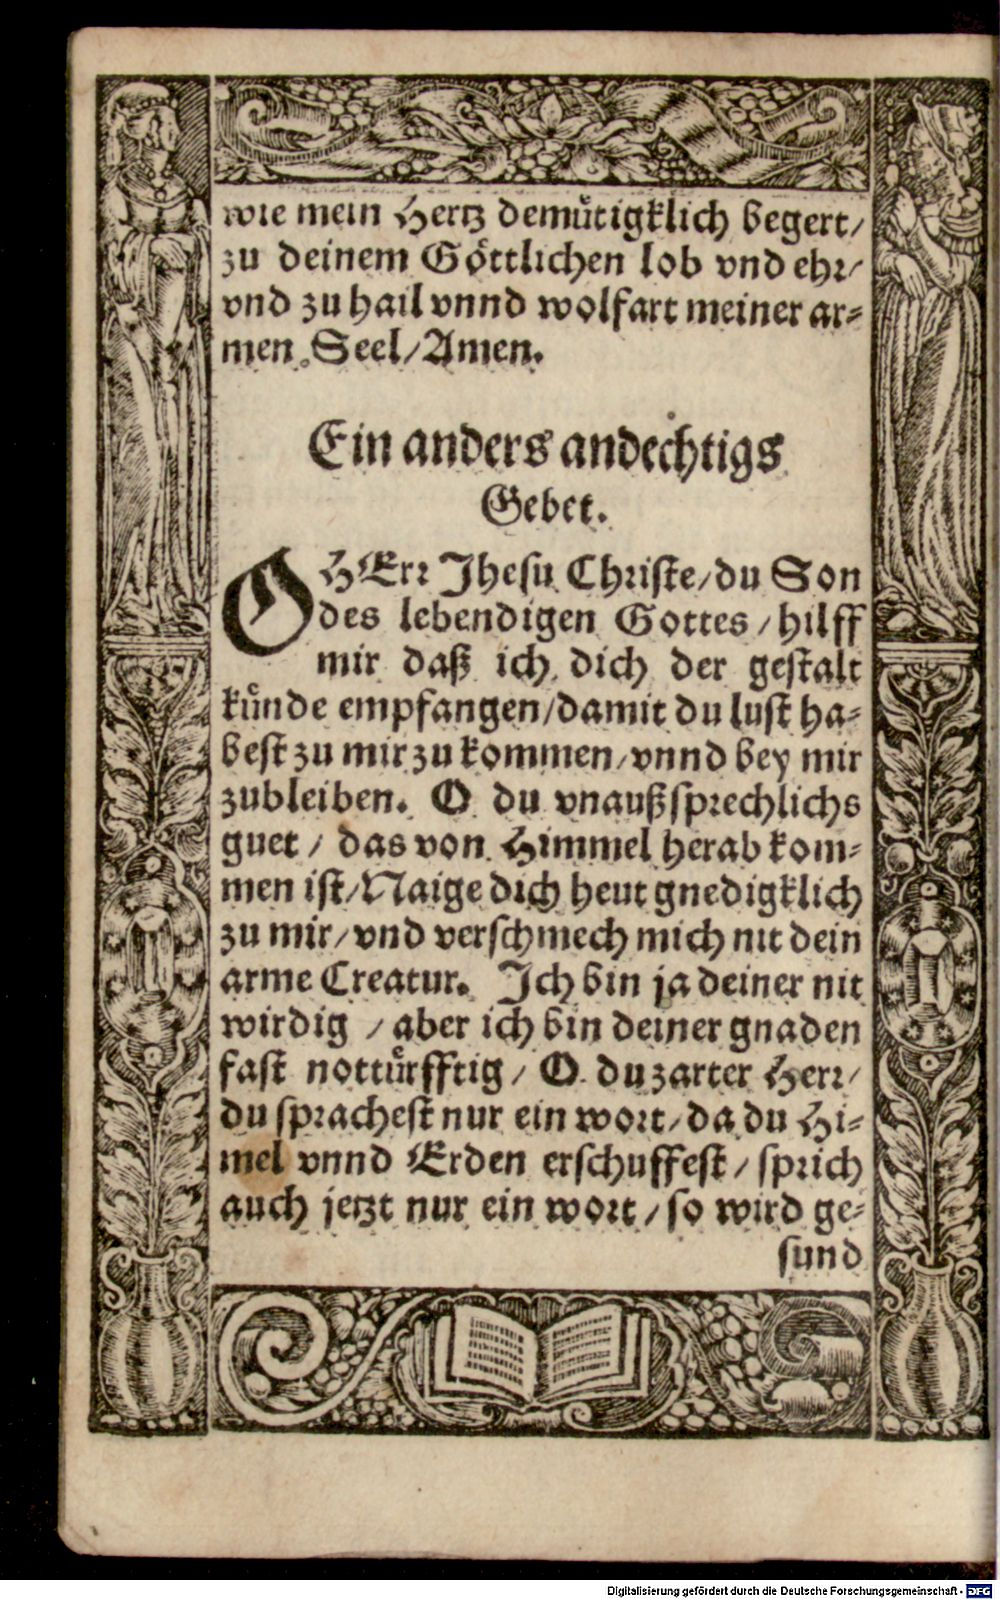 wie mein Hertz demuͤtigklich begert/
zu deinem Goͤttlichen lob vnd ehr/
vnd zu hail vnnd wolfart meiner ar-
men Seel/Amen.
Ein anders andechtigs
Gebet.
O HErr Jhesu Christe/du Son
des lebendigen Gottes/hilff
mir daß ich dich der gestalt
kuͤnde empfangen/damit du lust ha-
best zu mir zu kommen/vnnd bey mir
zubleiben. O du vnaußsprechlichs
guet/das von Himmel herab kom-
men ist/Naige dich heut gnedigklich
zu mir/vnd verschmech mich nit dein
arme Creatur. Ich bin ja deiner nit
wirdig/aber ich bin deiner gnaden
fast nottuͤrfftig/O du zarter Herr/
du sprachest nur ein wort/da du Hi-
mel vnnd Erden erschuffest/sprich
auch jetzt nur ein wort/so wird ge-
sund
Digitalisierung gefördert durch die Deutsche Forschungsgemeinschaft - DFG